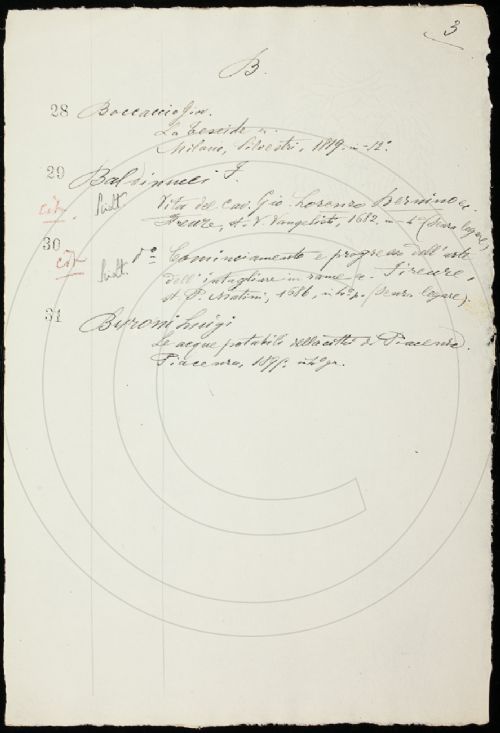 3
B.
28 Boccaccio Gio.
La Teseide
Milano, Silvestri, 1819. in-12°.
29 Baldinucci F.
Vita del Cav. Gio. Lorenzo Bernino
Firenze, st. V. Vangelisti, 1682. in-4° (senza legare)
30 d°
Cominciamento e progresso dell'arte
dell'intagliare in rame e. Firenze,
st. P. Matini, 1686, in 4° p. (senza legare).
31 Buroni Luigi
Le acque potabili della città di Piacenza.
Piacenza, in 4° gr.